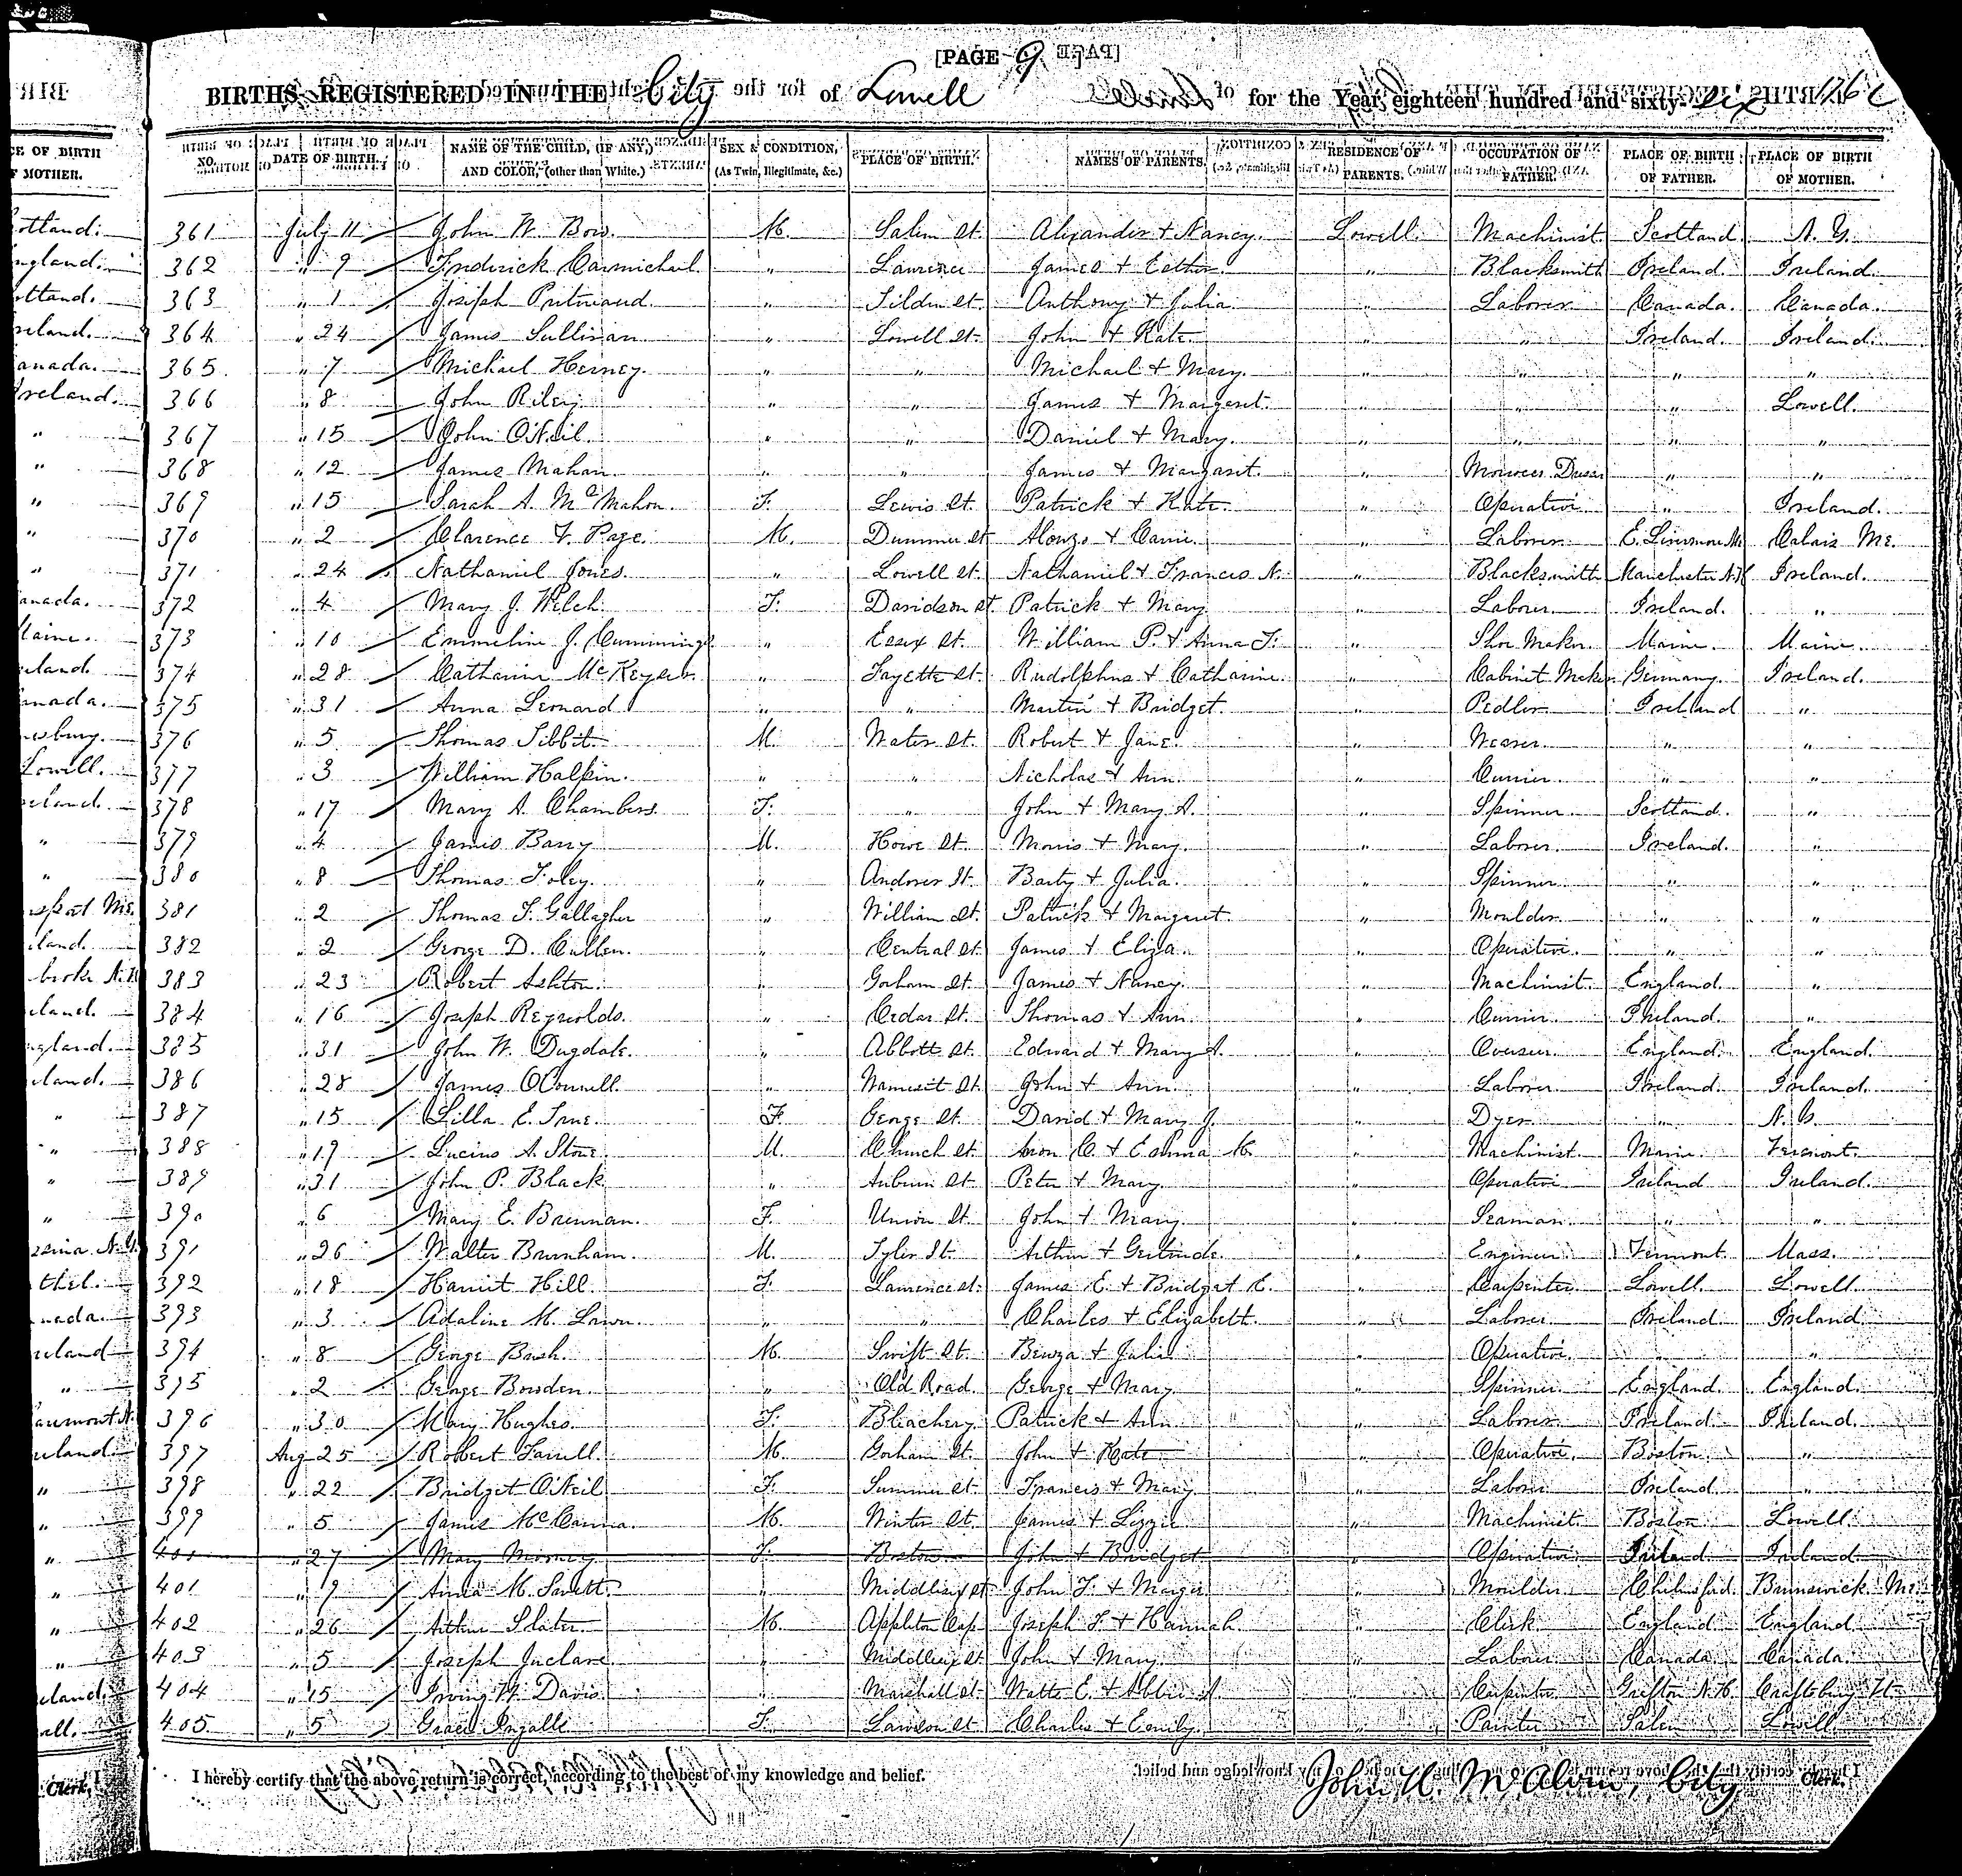 [PAGE 9]
BIRTHS REGISTERED IN THE City of Lowell for the Year eighteen hundred and sixty-six
NO. DATE OF BIRTH. NAME OF THE CHILD, (IF ANY,) AND COLOR, (other than White.) SEX & CONDITION, (As Twin, Illegitimate, &c.) PLACE OF BIRTH. NAMES OF PARENTS. RESIDENCE OF PARENTS. OCCUPATION OF FATHER. PLACE OF BIRTH OF FATHER. PLACE OF BIRTH OF MOTHER.
361 July 11 John W. Bow. M. Salem St. Alexander & Nancy. Lowell. Machinist. Scotland. N. Y.
362 " 9 Frederick Carmichael. " Lawrence James & Esther. " Blacksmith Ireland. Ireland.
363 " 1 Joseph " Tilden St. Anthony & Julia. " Laborer. Canada. Canada.
364 " 24 James Sullivan. " Lowell St. John & Kate. " " Ireland. Ireland.
365 " 7 Michael Herney. " " Michael & Mary. " " " "
366 " 8 John Riley. " " James & Margaret. " " " Lowell.
367 " 15 John O'Neil. " " Daniel & Mary. " " " "
368 " 12 James Mahan. " " James & Margaret. " " "
369 " 15 Sarah A. McMahon. F. Lewis St. Patrick & Kate. " Operative. " Ireland.
370 " 2 Clarence F. Page. M. Dummer St Alonzo & Carrie. " Laborer. Calais Me.
371 " 24 Nathaniel Jones. " Lowell St. Nathaniel & Frances N. " Blacksmith Manchester N.H. Ireland.
372 " 4 Mary J. Welch. F. Davidson St. Patrick & Mary. " Laborer. Ireland. "
373 " 10 Emmeline J. Cummings. " Essex St. William P. & Anna F. " Shoe Maker. Maine. Maine.
374 " 28 Catharine " Fayette St. Rudolphus & Catharine. " Cabinet Maker. Germany. Ireland.
375 " 31 Anna Leonard " " Martin & Bridget. " Pedler. Ireland "
376 " 5 Thomas Tibbit. M. Water St. Robert & Jane. " Weaver. " "
377 " 3 William Halpin. " " Nicholas & Ann. " Currier. " "
378 " 17 Mary A. Chambers. F. " John & Mary A. " Spinner. Scotland. "
379 " 4 James Barry M. Howe St. Morris & Mary. " Laborer. Ireland. "
380 " 8 Thomas Foley. " Andover St. Barty & Julia. " Spinner. " "
381 " 2 Thomas F. Gallagher " William St. Patrick & Margaret. " Moulder. " "
382 " 2 George D. Cullen. " Central St. James & Eliza. " Operative. " "
383 " 23 Robert Ashton. " Gorham St. James & Nancy. " Machinist. England. "
384 " 16 Joseph Reynolds. " Cedar St. Thomas & Ann. " Currier. Ireland. "
385 " 31 John W. Dugdale. " Abbott St. Edward & Mary A. " Overseer. England. England.
386 " 28 James O'Connell. " Wamesit St. John & Ann. " Laborer. Ireland. Ireland.
387 " 15 Lilla E. F. George St. David & Mary J. " Dyer. "
388 " 19 Lucius A. Stone. M. Church St. M. " Machinist. Maine. Vermont.
389 " 31 John P. Black. " Auburn St. Peter & Mary. " Operative Ireland Ireland.
390 " 6 Mary E. Brennan. F. Union St. John & Mary. " Seaman. " "
391 " 26 Walter Burnham. M. Tyler St. Arthur & Gertrude. " Engineer. Vermont. Mass.
392 " 18 Harriet Hill. F. Lawrence St. James E. & Bridget E. " Carpenter Lowell. Lowell.
393 " 3 Adaline M. " " Charles & Elizabeth. " Laborer Ireland. Ireland.
394 " 8 George Bush. M. Swift St. & Julia. " Operative. " "
395 " 2 George Bowden. " Old Road. George & Mary. " Spinner. England. England.
396 " 30 Mary Hughes. F. Bleachery Patrick & Ann. " Laborer. Ireland. Ireland.
397 Aug 25 Robert Farrell. M. Gorham St. John & Kate " Operative. Boston. "
398 " 22 Bridget O'Neil F. Summer St. Francis & Mary. " Laborer Ireland "
399 " 5 James McCanna. M. Winter St. James & Lizzie. " Machinist. Boston Lowell.
401 " 27 Mary Mooney F. Boston John & Bridget " Operative. Ireland Ireland
401 " 9 Anna M. " Middlesex St. John F. & " Moulder. Chelmsford. Brunswick Me.
402 " 26 Arthur Slater. M. Appleton Cop. Joseph F. & Hannah. " Clerk. England. England.
403 " 5 Joseph " Middlesex St. John & Mary. " Laborer. Canada. Canada.
404 " 15 Irving W. Davis. " Marshall St. & Abbie A. " Carpenter Grafton N.H. Craftsbury Vt.
405 " 5 Grace Ingalls F. Lawson St Charles & Emily. " Painter Salem Lowell
I hereby certify that the above return is correct, according to the best of my knowledge and belief.
John H. McAlvin, City Clerk.